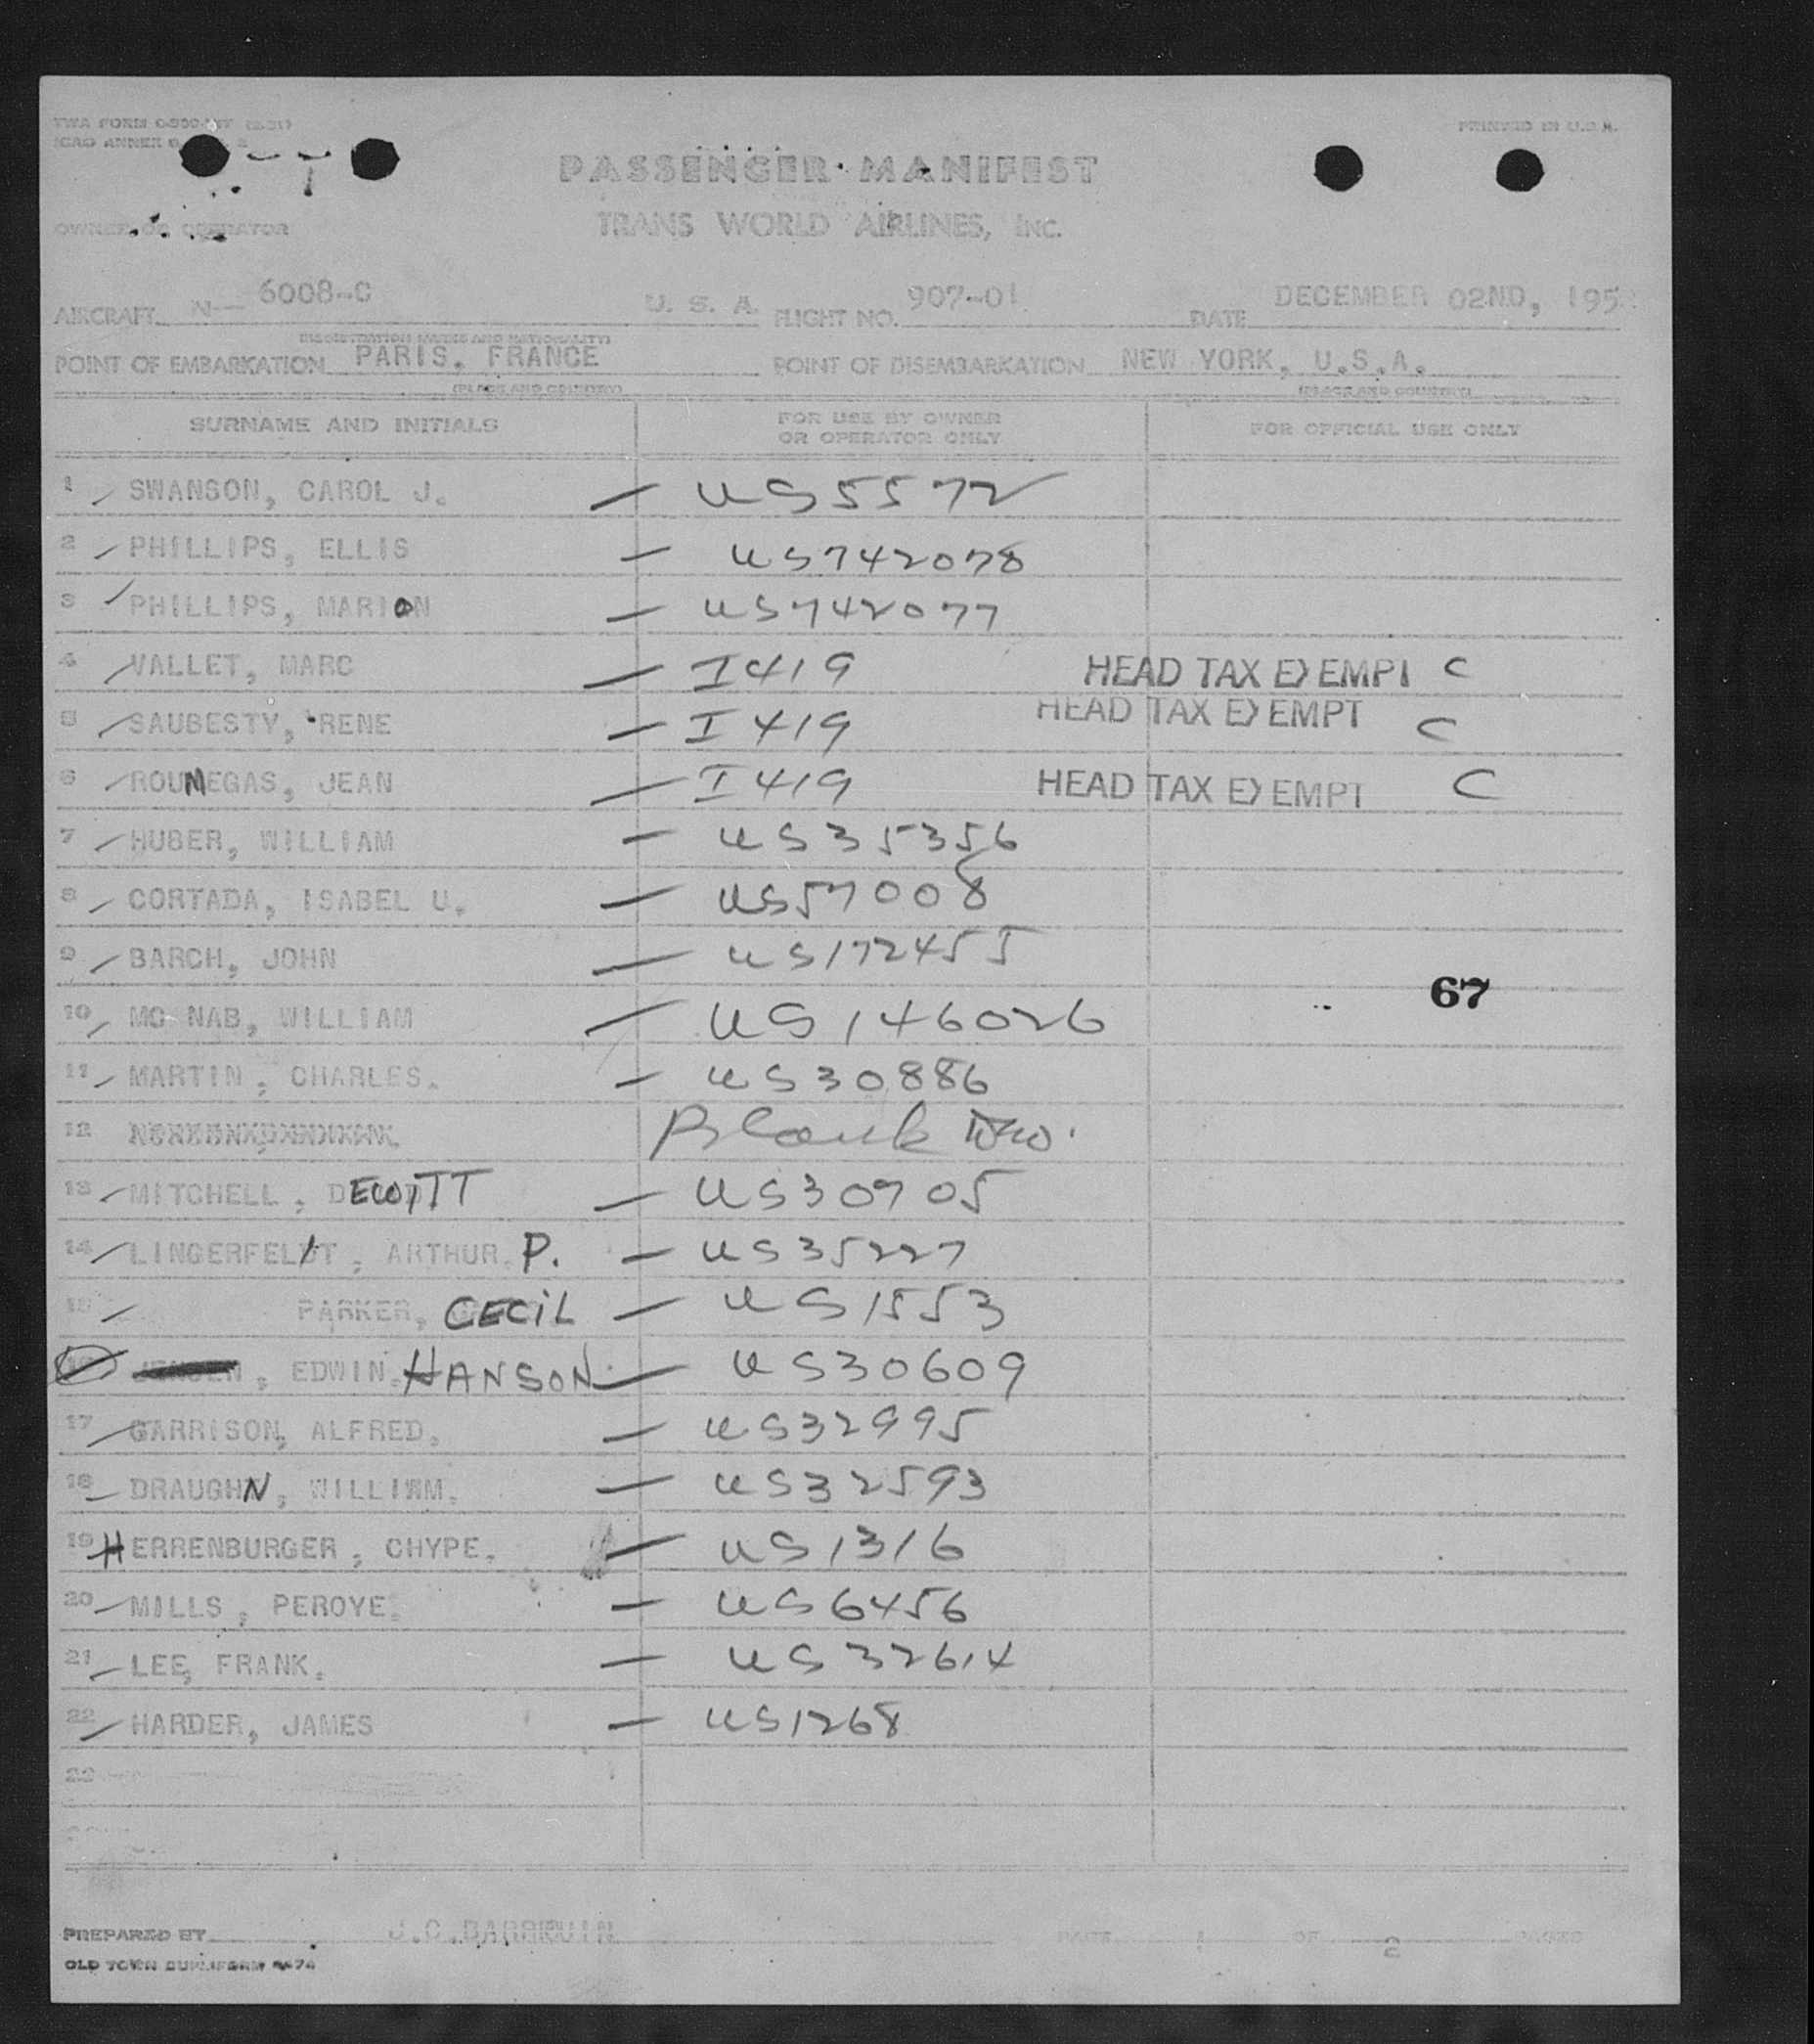 PRINTED IN U.S.A.
PASSENGER MANIFEST
OWNER OR OPERATOR TRANS WORLD AIRLINES, INC.
AIRCRAFT N- 6008-C U. S. A. FLIGHT NO. 907-01 DATE DECEMBER 02ND, 195
(REGISTRATION MARKS AND NATIONALITY)
POINT OF EMBARKATION PARIS, FRANCE POINT OF DISEMBARKATION NEW YORK, U.S.A.
(PLACE AND COUNTRY) (PLACE AND COUNTRY)
SURNAME AND INITIALS FOR USE BY OWNER OR OPERATOR ONLY FOR OFFICIAL USE ONLY
1 SWANSON, CAROL J. — US5572
2 PHILLIPS, ELLIS — US742078
3 PHILLIPS, MARION — US742077
4 VALLET, MARC — I419 HEAD TAX EXEMPT C
5 SAUBESTY, RENE — I419 HEAD TAX EXEMPT C
6 ROUMEGAS, JEAN — I419 HEAD TAX EXEMPT C
7 HUBER, WILLIAM — US35356
8 CORTADA, ISABEL U. — US57008
9 BARCH, JOHN — US172455
67
10 MC NAB, WILLIAM — US146026
11 MARTIN, CHARLES. — US30886
12 Blank
13 MITCHELL, DEWITT — US30705
14 LINGERFELT, ARTHUR P. — US35227
15 PARKER, CECIL — US1553
16 EDWIN. HANSON — US30609
17 GARRISON, ALFRED. — US32995
18 DRAUGHN, WILLIAM. — US32593
19 HERRENBURGER, CHYPE. — US1316
20 MILLS, PEROYE. — US6456
21 LEE, FRANK. — US32614
22 HARDER, JAMES — US1268
23
PREPARED BY PAGE 1 OF 2 PAGES
OLD TOWN